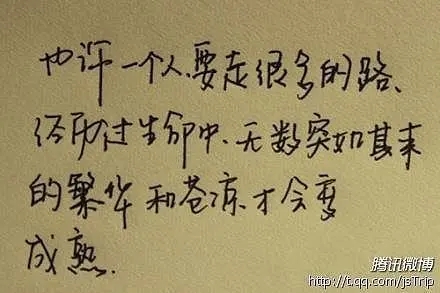 也许一个人、要走很多的路、
经历过生命中、无数突如其来
的繁华和苍凉.才会变
成熟.
腾讯微博
http://t.qq.com/jsTrip